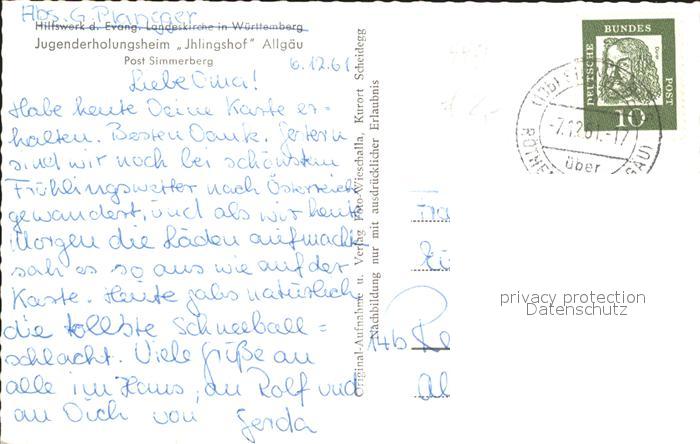 Abs. G.
Hilfswerk d. Evang. Landeskirche in Württemberg
Jugenderholungsheim „Jhlingshof" Allgäu
Post Simmerberg
6.12.61
Liebe Oma!
Habe heute Deine Karte er=
halten. Besten Dank. Gestern
sind wir noch bei schönstem
Frühlingswetter nach Österreich
gewandert, und als wir heute
Morgen die Läden aufmachten
sah es so aus wie auf der
Karte. Heute gabs natürlich
die tollste Schneeball=
schlacht. Viele Grüße an
alle im Haus, an Rolf und
an Dich von Gerda
Original-Aufnahme u. Verlag Foto-Wieschalla, Kurort Scheidegg
Nachbildung nur mit ausdrücklicher Erlaubnis
DEUTSCHE BUNDES POST
10
-7.12.61.-17
über
RÖTHEN
GÄU)
Fra
14b Re
privacy protection
Datenschutz